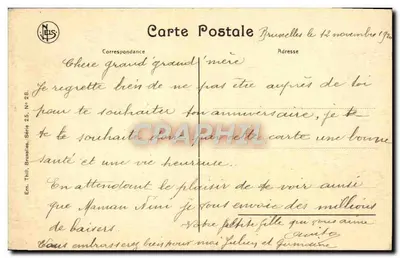 Carte Postale
Bruxelles le 12 novembre
Correspondance
Adresse
Chere grand grand'mère
Je regrette bien de ne pas être auprès de toi
pour te souhaiter ton anniversaire, je
te souhaite par cette carte une bonne
santé et une vie heureuse.
En attendant le plaisir de te voir ainsi
que Maman Nini je vous envoie des millions
de baisers
Votre petite fille qui vous aime
Vous embrasserez bien pour moi Julien et Germaine
Ern. Thill, Bruxelles, Série 25, No 28.
NELS
CPAPHIL